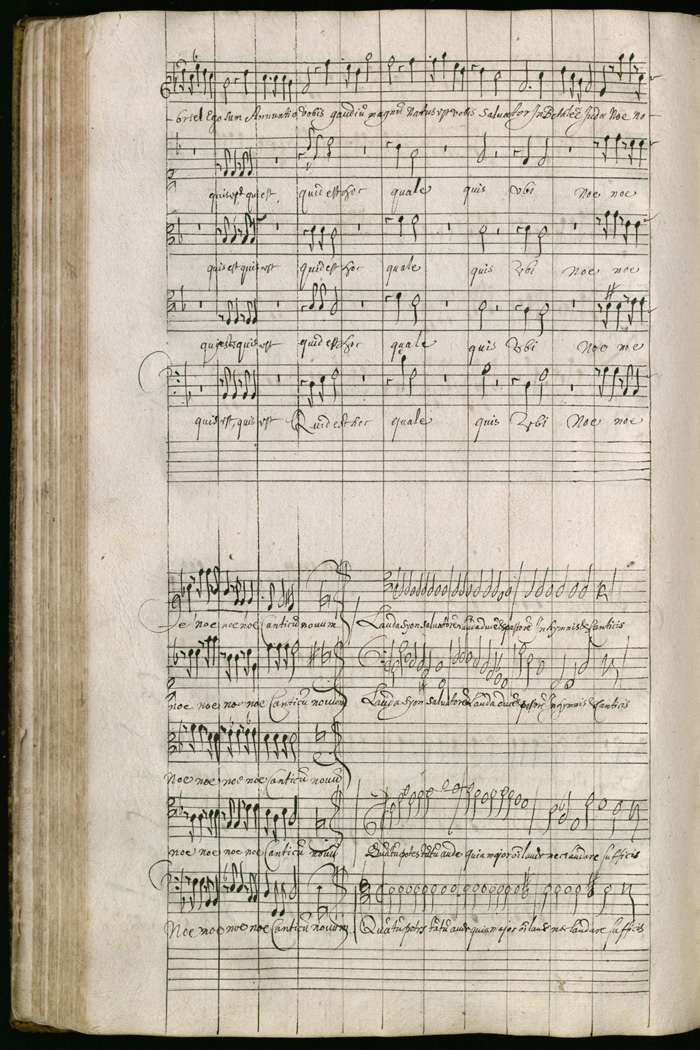 briel Ego sum Annuntio vobis gaudiũ magnũ Natus est vobis Salvator In Bethleẽ Juda Noe no
quis est quis est, quid est hoc quale quis Vbi Noe noe
quis est quis est quid est hoc quale quis Vbi Noe noe
quis est quis est quid est hoc quale quis Vbi Noe noe
quis est, quis est Quid est hoc quale quis Vbi Noe noe
noe noe noe Canticũ novum Lauda Syon salvatorẽ lauda ducẽ & pastorẽ In hymnis & Canticis
noe noe noe noe Canticũ novum Lauda Syon salvatorẽ lauda ducẽ & pastorẽ In hymnis & Canticis
Noe noe noe noe Canticũ novũ
noe noe noe noe Canticũ novũ Quãtũ potes tãtũ aude quia major oĩ laude nec laudare sufficis
Noe noe noe noe Canticũ novum Quãtũ potes tãtũ aude quia major oĩ laude nec laudare sufficis